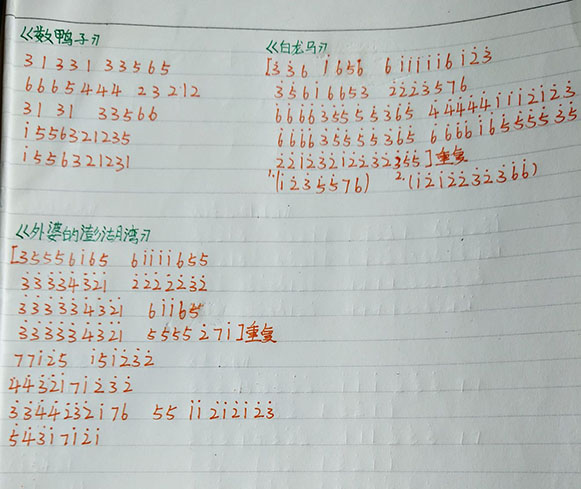 《数鸭子》
3 1 3 3 1 3 3 5 6 5
6 6 6 5 4 4 4 2 3 2 1 2
3 1 3 1 3 3 5 6 6
i 5 5 6 3 2 1 2 3 5
i 5 5 6 3 2 1 2 3 1
《白龙马》
[3̇ 3̇ 6 i 6 5 6 6 i i i i i 6 i 2̇ 3̇
3̇ 5 6 i 6 6 5 3 2̇ 2̇ 2̇ 3 5 7 6
6̇ 6̇ 6̇ 6̇ 3̇ 5̇ 5̇ 5̇ 5̇ 3̇ 6̇ 5̇ 4̇ 4̇ 4̇ 4̇ 4̇ i i i 2̇ i 2̇ 3̇
6̇ 6̇ 6̇ 6̇ 3̇ 5̇ 5̇ 5̇ 5̇ 3̇ 6̇ 5̇ 6̇ 6̇ 6̇ 6̇ i 6̇ 5̇ 5̇ 5̇ 5̇ 3̇ 5̇
2̇ 2̇ i 2̇ 3̇ 2̇ i 2̇ 2̇ 3̇ 2̇ 3̇ 5̇ 5̇ ] 重复
1. (i 2̇ 3̇ 5̇ 5̇ 7 6) 2. (i 2̇ i 2̇ 2̇ 3̇ 2̇ 3̇ 6̇ 6̇)
《外婆的澎湖湾》
[3 5 5 5 6 i 6 5 6 i i i i 6 5 5
3̇ 3̇ 3̇ 3̇ 4̇ 3̇ 2̇ i 2̇ 2̇ 2̇ 2̇ 2̇ 3̇ 2̇
3̇ 3̇ 3̇ 3̇ 3̇ 4̇ 3̇ 2̇ i 6 i i 6 5
3̇ 3̇ 3̇ 3̇ 3̇ 4̇ 3̇ 2̇ i 5 5 5 5 2̇ 7 i ] 重复
7 7 i 2̇ 5 i 5 i 2̇ 3̇ 2̇
4̇ 4̇ 3̇ 2̇ i 7 i 2̇ 3̇ 2̇
3̇ 3̇ 4̇ 4̇ 2̇ 3̇ 2̇ i 7 6 5 5 i i 2̇ i 2̇ i 2̇ 3̇
5̇ 4̇ 3̇ i 7 i 2̇ i